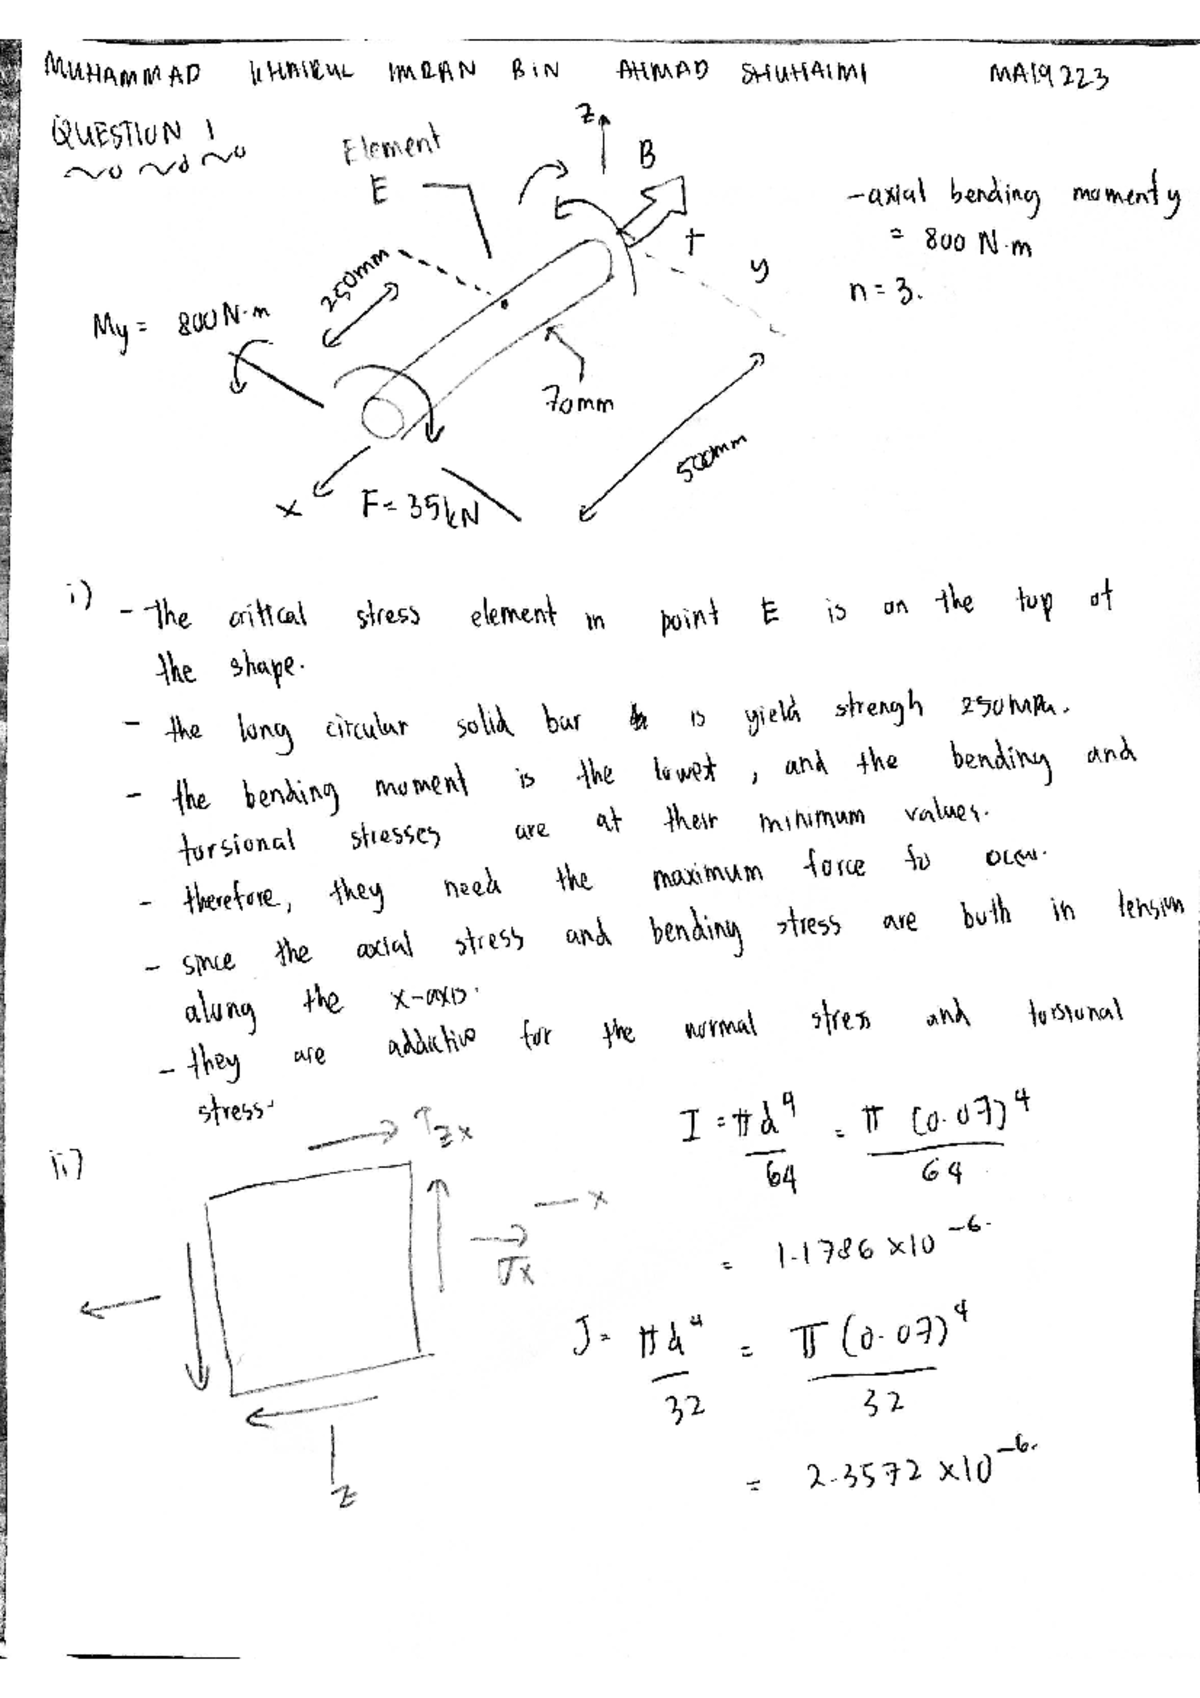 MUHAMMAD KHAIRUL IMRAN BIN AHMAD SHUHAIMI MA19223
QUESTION 1
Element
E
z
B
T
y
-axial bending moment y
= 800 N·m
n = 3.
250mm
My = 800 N·m
70mm
500mm
x
F = 35 kN
i)
- the critical stress element in point E is on the top of
the shape.
- the long circular solid bar is yield strengh 250 MPa.
- the bending moment is the lowest, and the bending and
torsional stresses are at their minimum values.
- therefore, they need the maximum force to occur.
- since the axial stress and bending stress are both in tension
along the x-axis.
- they are addictive for the normal stress and torsional
stress.
ii)
τzx
x
σx
z
I = πd⁴ = π (0.07)⁴
64 64
= 1.1786 × 10⁻⁶.
J = πd⁴ = π (0.07)⁴
32 32
= 2.3572 × 10⁻⁶.